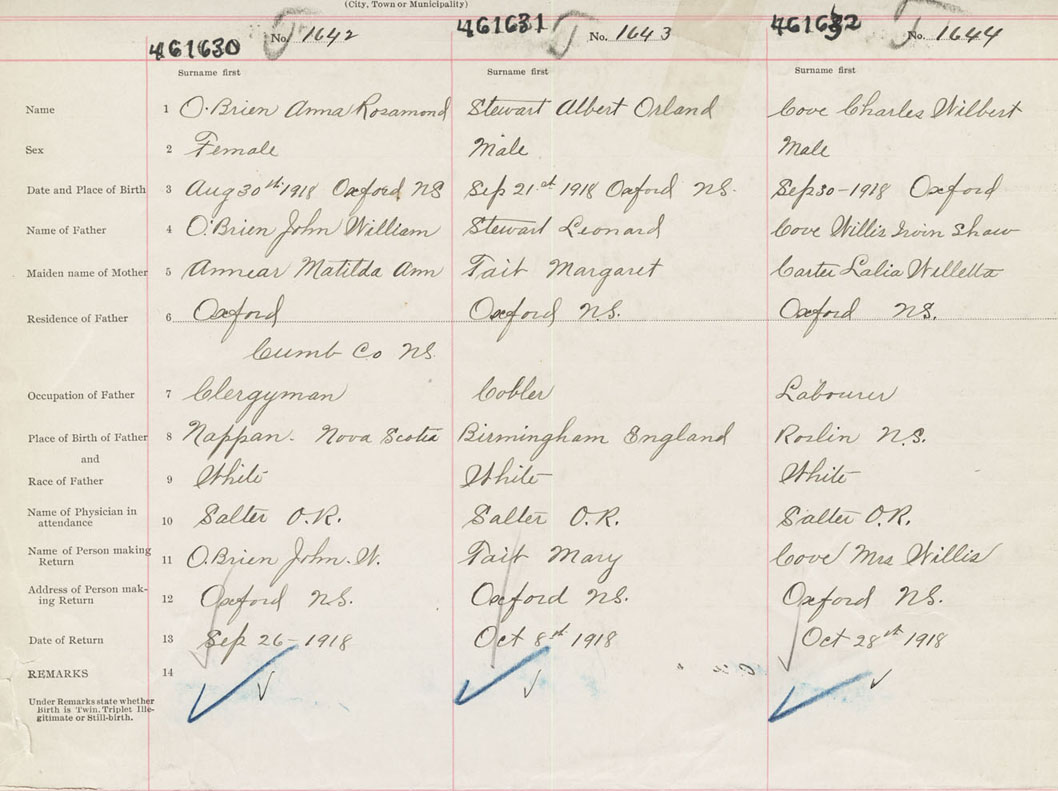 (City, Town or Municipality)
461630 No. 1642 461631 No. 1643 461632 No. 1644
Surname first Surname first Surname first
Name 1 O'Brien Anna Rosamond Stewart Albert Orland Cove Charles Wilbert
Sex 2 Female Male Male
Date and Place of Birth 3 Aug 30th 1918 Oxford NS Sep 21st 1918 Oxford NS. Sep 30-1918 Oxford
Name of Father 4 O'Brien John William Stewart Leonard Cove Willis Irvin Shaw
Maiden name of Mother 5 Annear Matilda Ann Tait Margaret Carter Lalia Willetta
Residence of Father 6 Oxford Oxford N.S. Oxford NS.
Cumb Co NS.
Occupation of Father 7 Clergyman Cobler Labourer
Place of Birth of Father 8 Nappan. Nova Scotia Birmingham England Roslin N.S.
and
Race of Father 9 White White White
Name of Physician in
attendance 10 Salter O.R. Salter O.R. Salter O.R.
Name of Person making
Return 11 O.Brien John. W. Tait Mary Cove Mrs Willis
Address of Person mak-
ing Return 12 Oxford N.S. Oxford NS. Oxford NS.
Date of Return 13 Sep 26-1918 Oct 8st 1918 Oct 28st 1918
REMARKS 14
Under Remarks state whether
Birth is Twin. Triplet Ille-
gitimate or Still-birth.